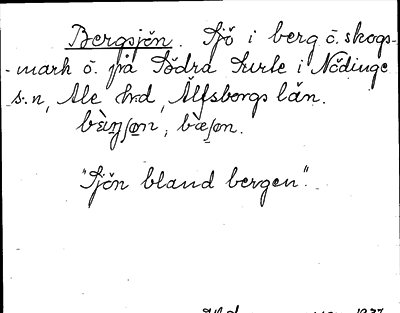 Bergsjön. Sjö i berg o. skogs-
-mark ö. på Södra Surte i Nödinge
s:n, Ale hrd, Älfsborgs län.
"Sjön bland bergen".
1937